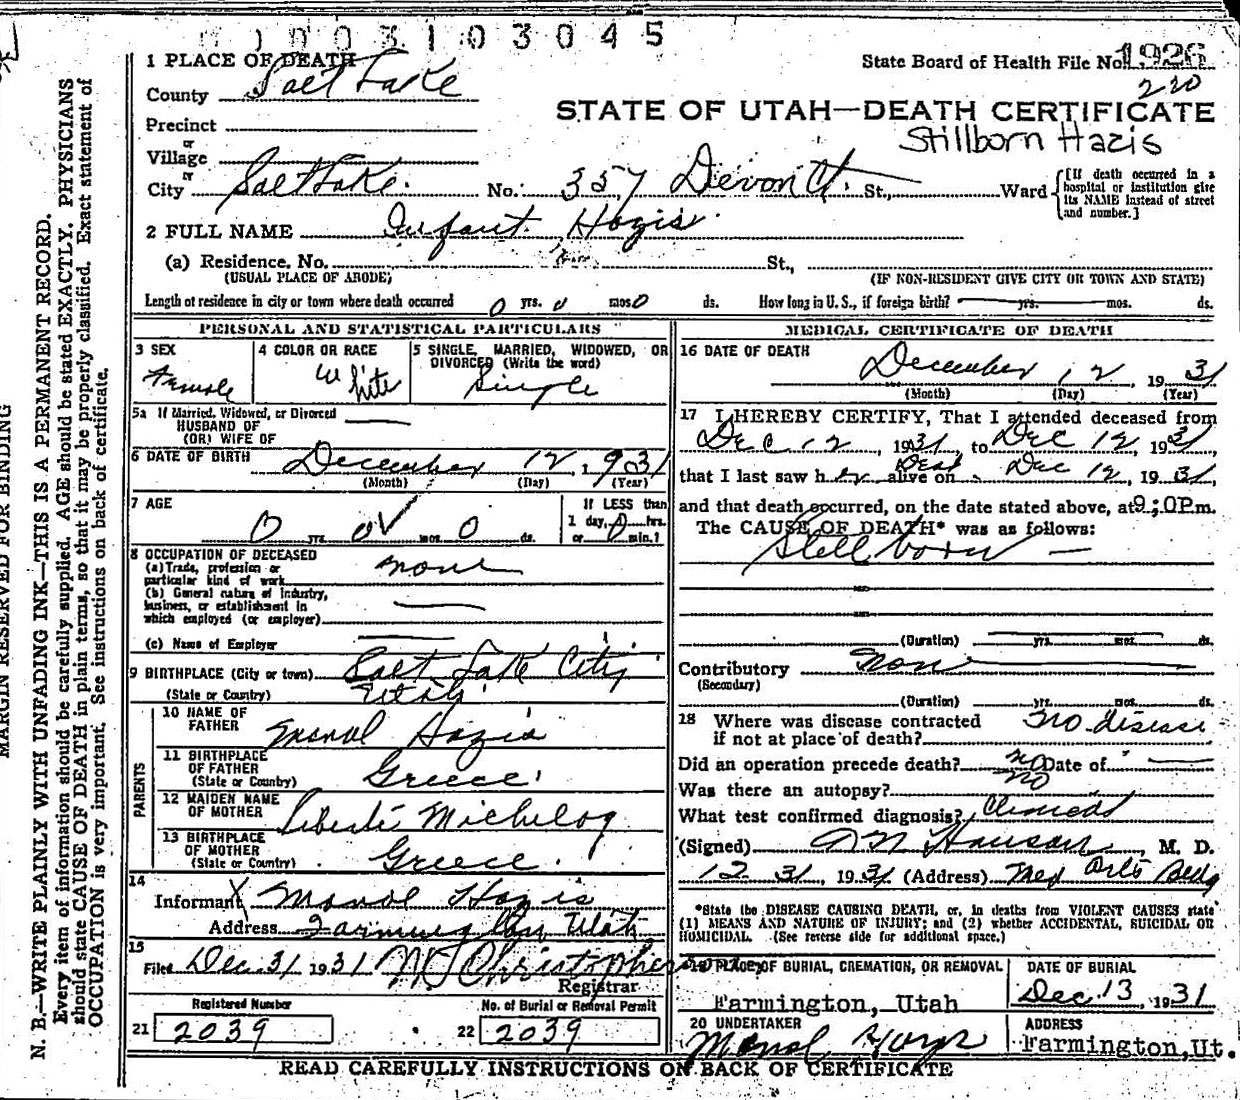 0003103045
1 PLACE OF DEATH
State Board of Health File No. 1926
County Salt Lake
220
STATE OF UTAH—DEATH CERTIFICATE
Precinct
Stillborn Hazis
or
Village
or
City Salt Lake. No. 357 Devon Ct. St., Ward
[If death occurred in a hospital or institution give its NAME instead of street and number.]
2 FULL NAME Infant Hozis
(a) Residence, No. St.,
(USUAL PLACE OF ABODE) (IF NON-RESIDENT GIVE CITY OR TOWN AND STATE)
Length of residence in city or town where death occurred 0 yrs. 0 mos. 0 ds. How long in U. S., if foreign birth? yrs. mos. ds.
PERSONAL AND STATISTICAL PARTICULARS
3 SEX Female
4 COLOR OR RACE White
5 SINGLE, MARRIED, WIDOWED, OR DIVORCED (Write the word) Single
5a If Married, Widowed, or Divorced
HUSBAND OF
(OR) WIFE OF
6 DATE OF BIRTH December 12, 1931
(Month) (Day) (Year)
7 AGE If LESS than
0 yrs. 0 mos. 0 ds. 1 day, 0 hrs.
or 0 min.?
8 OCCUPATION OF DECEASED
(a) Trade, profession or
particular kind of work none
(b) General nature of industry,
business, or establishment in
which employed (or employer)
(c) Name of Employer
9 BIRTHPLACE (City or town) Salt Lake City
(State or Country) Utah
PARENTS
10 NAME OF
FATHER Manol Hozis
11 BIRTHPLACE
OF FATHER
(State or Country) Greece
12 MAIDEN NAME
OF MOTHER Michelog
13 BIRTHPLACE
OF MOTHER
(State or Country) Greece.
14
Informant X Manol Hozis
Address Farmington Utah
15
Filed Dec. 31 1931 Christopherson
Registrar
Registered Number No. of Burial or Removal Permit
21 2039 22 2039
MEDICAL CERTIFICATE OF DEATH
16 DATE OF DEATH
December 12, 1931
(Month) (Day) (Year)
17 I HEREBY CERTIFY, That I attended deceased from
Dec 12, 1931, to Dec 12, 1931,
that I last saw her alive on Dec 12, 1931,
and that death occurred, on the date stated above, at 9:0 P.m.
The CAUSE OF DEATH* was as follows:
Stillborn —
(Duration) yrs. mos. ds.
Contributory None
(Secondary)
(Duration) yrs. mos. ds.
18 Where was disease contracted
if not at place of death? No disease
Did an operation precede death? no Date of
Was there an autopsy? no
What test confirmed diagnosis? Clinical
(Signed) Hanson, M. D.
12 31, 1931 (Address) Med Arts Bldg
*State the DISEASE CAUSING DEATH, or, in deaths from VIOLENT CAUSES state
(1) MEANS AND NATURE OF INJURY; and (2) whether ACCIDENTAL, SUICIDAL OR
HOMICIDAL. (See reverse side for additional space.)
19 PLACE OF BURIAL, CREMATION, OR REMOVAL DATE OF BURIAL
Farmington, Utah Dec 13, 1931
20 UNDERTAKER ADDRESS
Manol Farmington, Ut.
READ CAREFULLY INSTRUCTIONS ON BACK OF CERTIFICATE
MARGIN RESERVED FOR BINDING
N. B.—WRITE PLAINLY WITH UNFADING INK—THIS IS A PERMANENT RECORD.
Every item of information should be carefully supplied. AGE should be stated EXACTLY. PHYSICIANS
should state CAUSE OF DEATH in plain terms, so that it may be properly classified. Exact statement of
OCCUPATION is very important. See instructions on back of certificate.